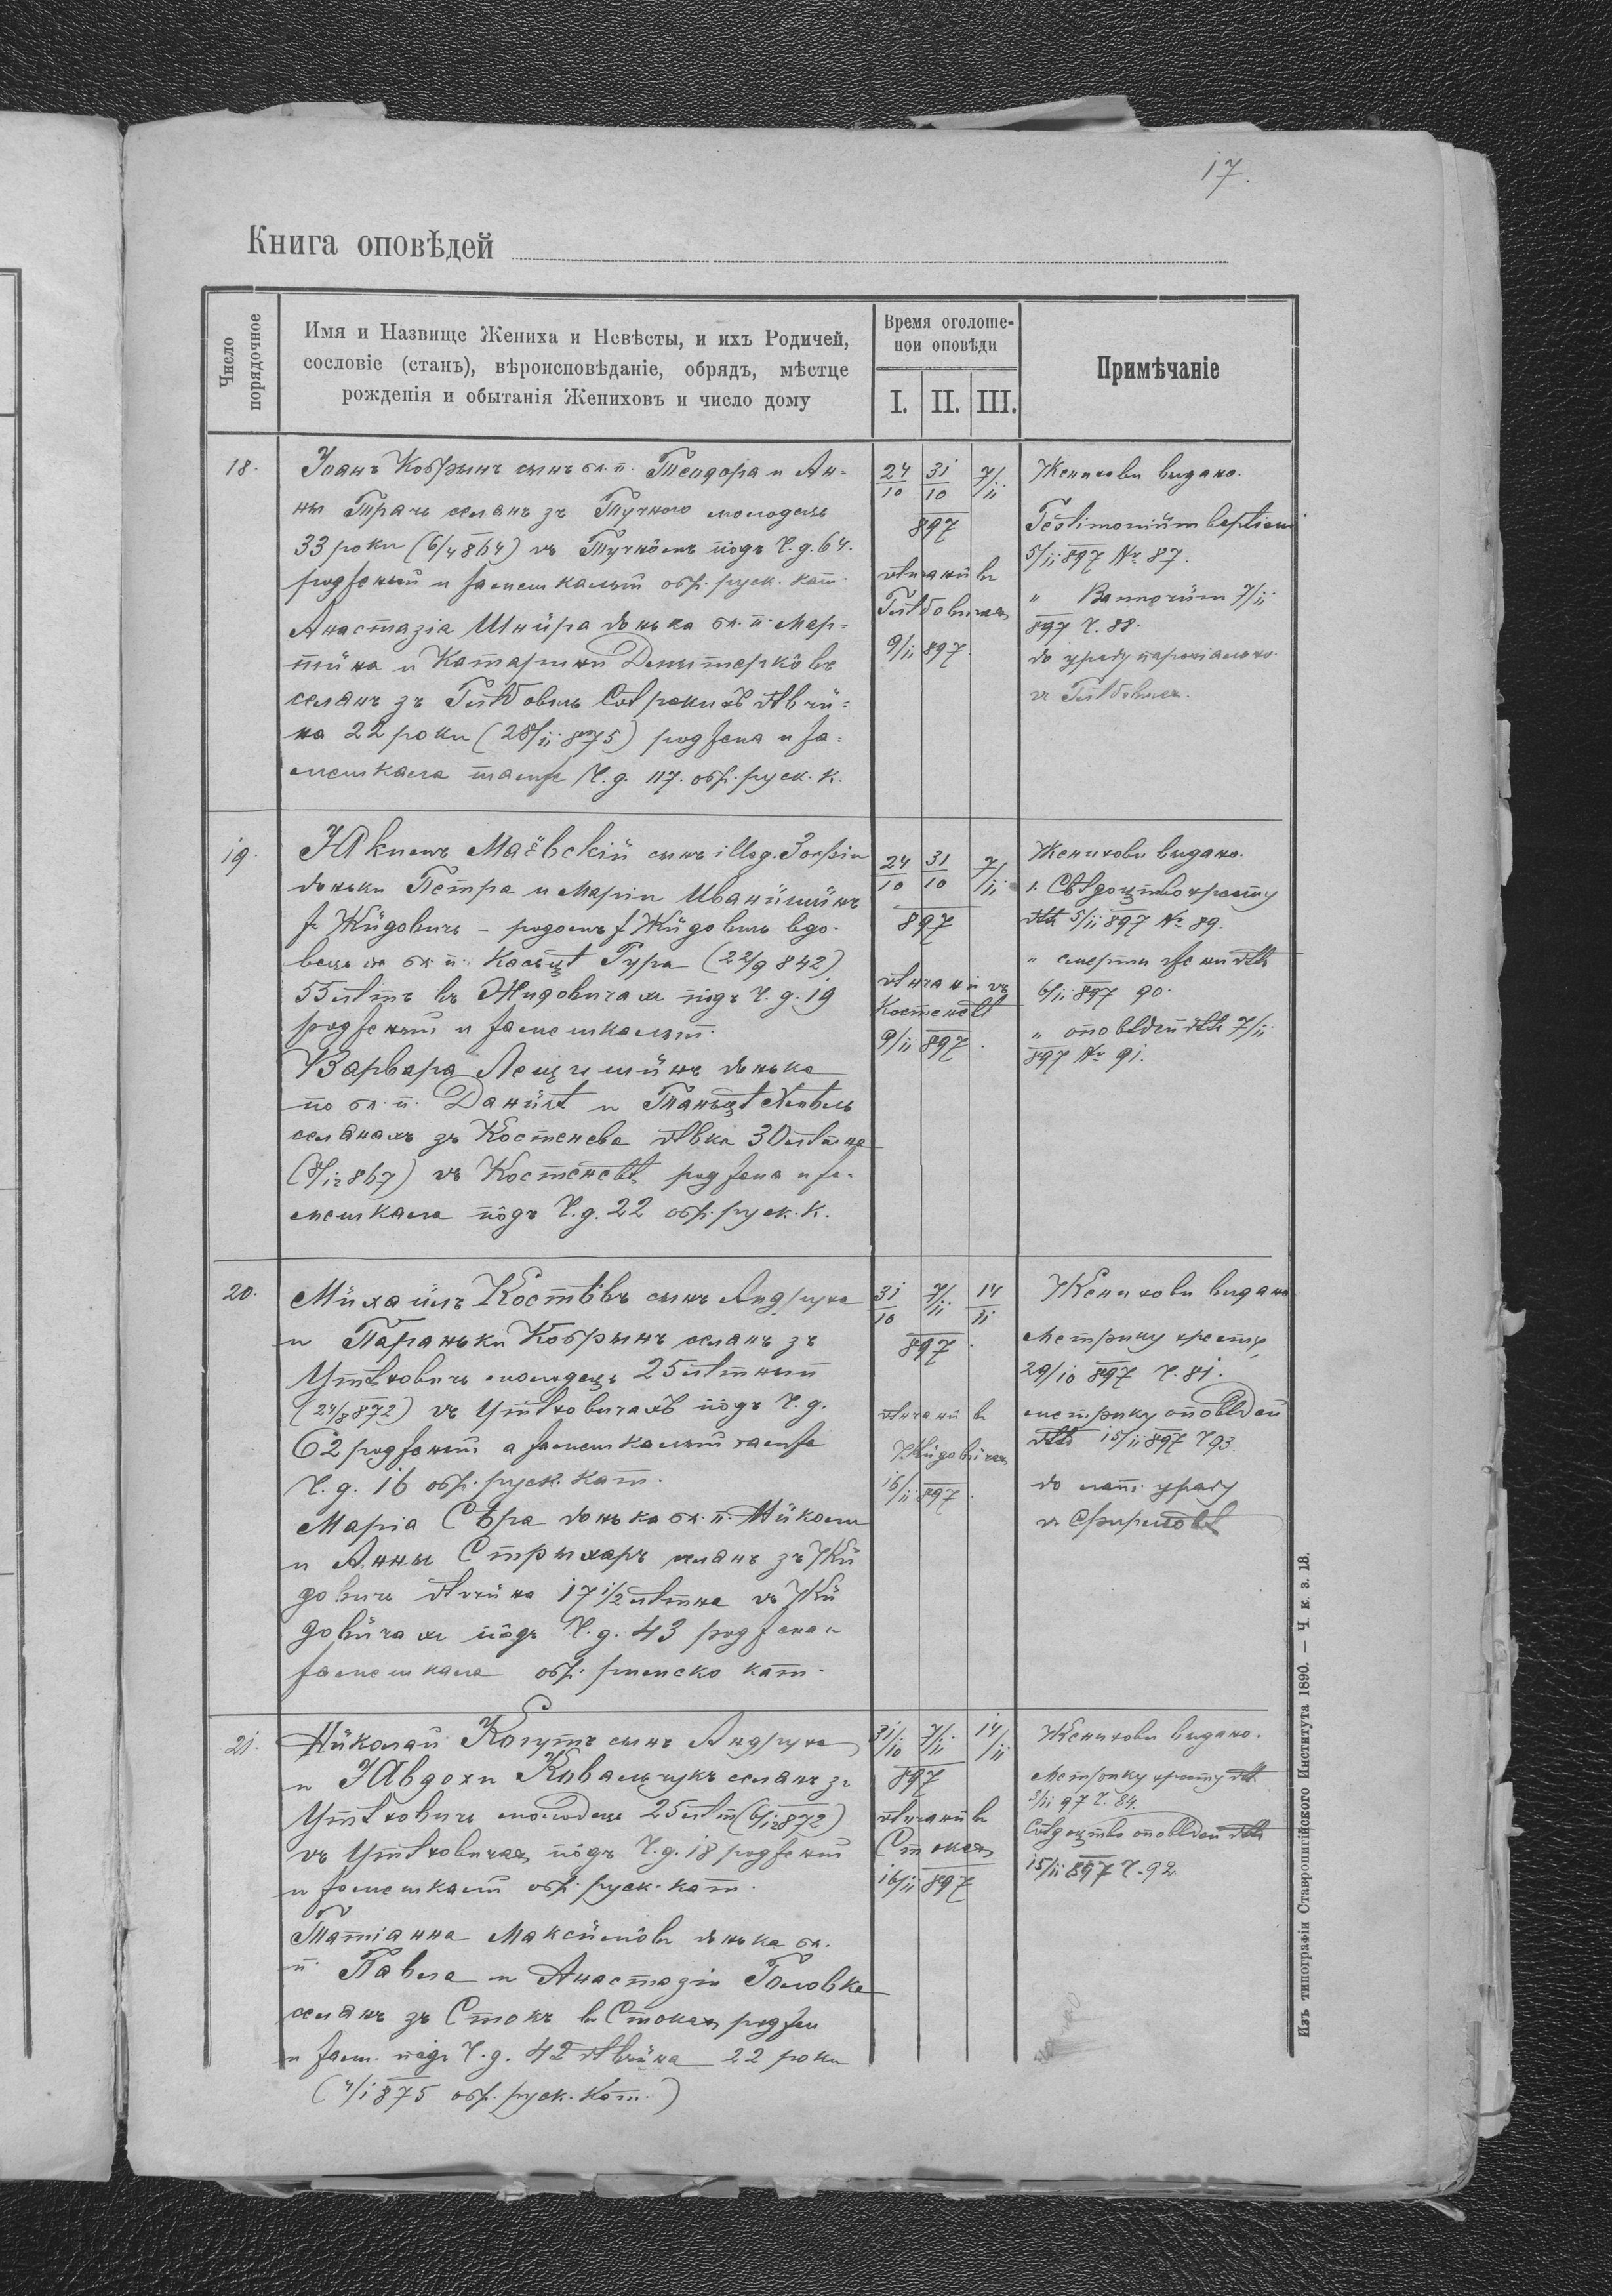 17.
Книга оповѣдей
Число порядочное
Имя и Назвище Жениха и Невѣсты, и ихъ Родичей,
сословіе (станъ), вѣроисповѣданіе, обрядъ, мѣстце
рожденія и обытанія Жениховъ и число дому
Время оголоше-
нои оповѣди
I. II. III.
Примѣчаніе
18.
Іоанъ Кобрынъ сынъ бл. п. Теодора и Ан-
ны Трачъ селянъ зъ Тучного молодець
33 роки (6/4 864) въ Тучнôмъ пôдъ Ч. д. 64.
родженый и замешкалый обр. руск. кат.
Анастазіа Шнира донька бл. п. Мар-
тина и Катарины Дмытеркôвъ
селянъ зъ Гл
на 22 роки (28/11 875) роджена и за-
мешкала тамже Ч. д. 117. обр. руск. к.
24/10 31/10 7/11
897
вѣнчаній въ
9/11 897
Женихови выдано.
Testimonium baptismi
5/11 897 № 87.
" Bannorum 7/11
897 Ч. 88.
до уряду парохіально.
19.
Якимъ Маёвскій сынъ Зофіи
доньки Петра и Маріи Иванишинъ
з Жидовичъ – родомъ з Жидовичъ вдо-
вець по бл. п. Гура (22/9 842)
55 лѣтъ въ Жидовичахъ пôдъ Ч. д. 19
родженый и замешкалый.
Варвара Лещишинъ донька
по бл. п. Данилѣ и
селянахъ зъ Костенева дѣвка 30 лѣтна
(8/12 867) въ Костеневѣ роджена и за-
мешкала пôдъ Ч. д. 22 обр. руск. к.
24/10 31/10 7/11
897
вѣнчаній въ
Костеневѣ
9/11 897.
Женихови выдано.
1. Свѣдоцтво хресту
дтто 5/11 897 № 89.
" смерти жены дтто
6/11 897 90.
" оповѣдей дтто 7/11
897 № 91.
20.
Михаилъ Костѣвъ сынъ Андруха
и Параньки Кобрынъ селянъ зъ
Утѣховичъ молодець 25 лѣтный
(24/8 872) въ Утѣховичахъ пôдъ Ч. д.
62 родженый а замешкалый тамже
Ч. д. 16 обр. руск. кат.
Маріа Сѣра донька бл. п. Николы
и Анны Стрыхаръ селянъ зъ Жи
довичъ дѣвчина 17 1/2 лѣтна въ Жи
довичахъ пôдъ Ч. д. 43 роджена и
замешкала обр. римско кат.
31/10 7/11 14/11
897.
вѣнчаній въ
Жидовичах
16/11 897.
Женихови выдано
Метрику хресту
29/10 897 Ч. 81.
метрику оповѣдей
дтто 15/11 897 Ч 93.
до лат. уряду
в Фирлеѣвѣ
21.
Николай Когутъ сынъ Андруха
и Явдохи Ковальчукъ селянъ зъ
Утѣховичъ молодець 25 лѣт (6/12 872)
въ Утѣховичахъ пôдъ Ч. д. 18 родженый
и замешкалый обр. руск. кат.
Татіанна Максимôвъ донька бл.
п. Павла и Анастазіи Головка
селянъ зъ Стокъ въ Стокахъ роджен
и зам. пôдъ Ч. д. 42 дѣвчина 22 роки
(4/1 875 обр. руск. кат.)
31/10 7/11 14/11
897
вѣнчаній въ
Стоках
16/11 897
Женихови выдано.
Метрику хресту дтто
3/11 97 Ч. 84.
Свѣдоцтво оповѣдей дтто
15/11 897 Ч. 92.
Изъ типографіи Ставропигійского Института 1890. — Ч. к. з. 18.